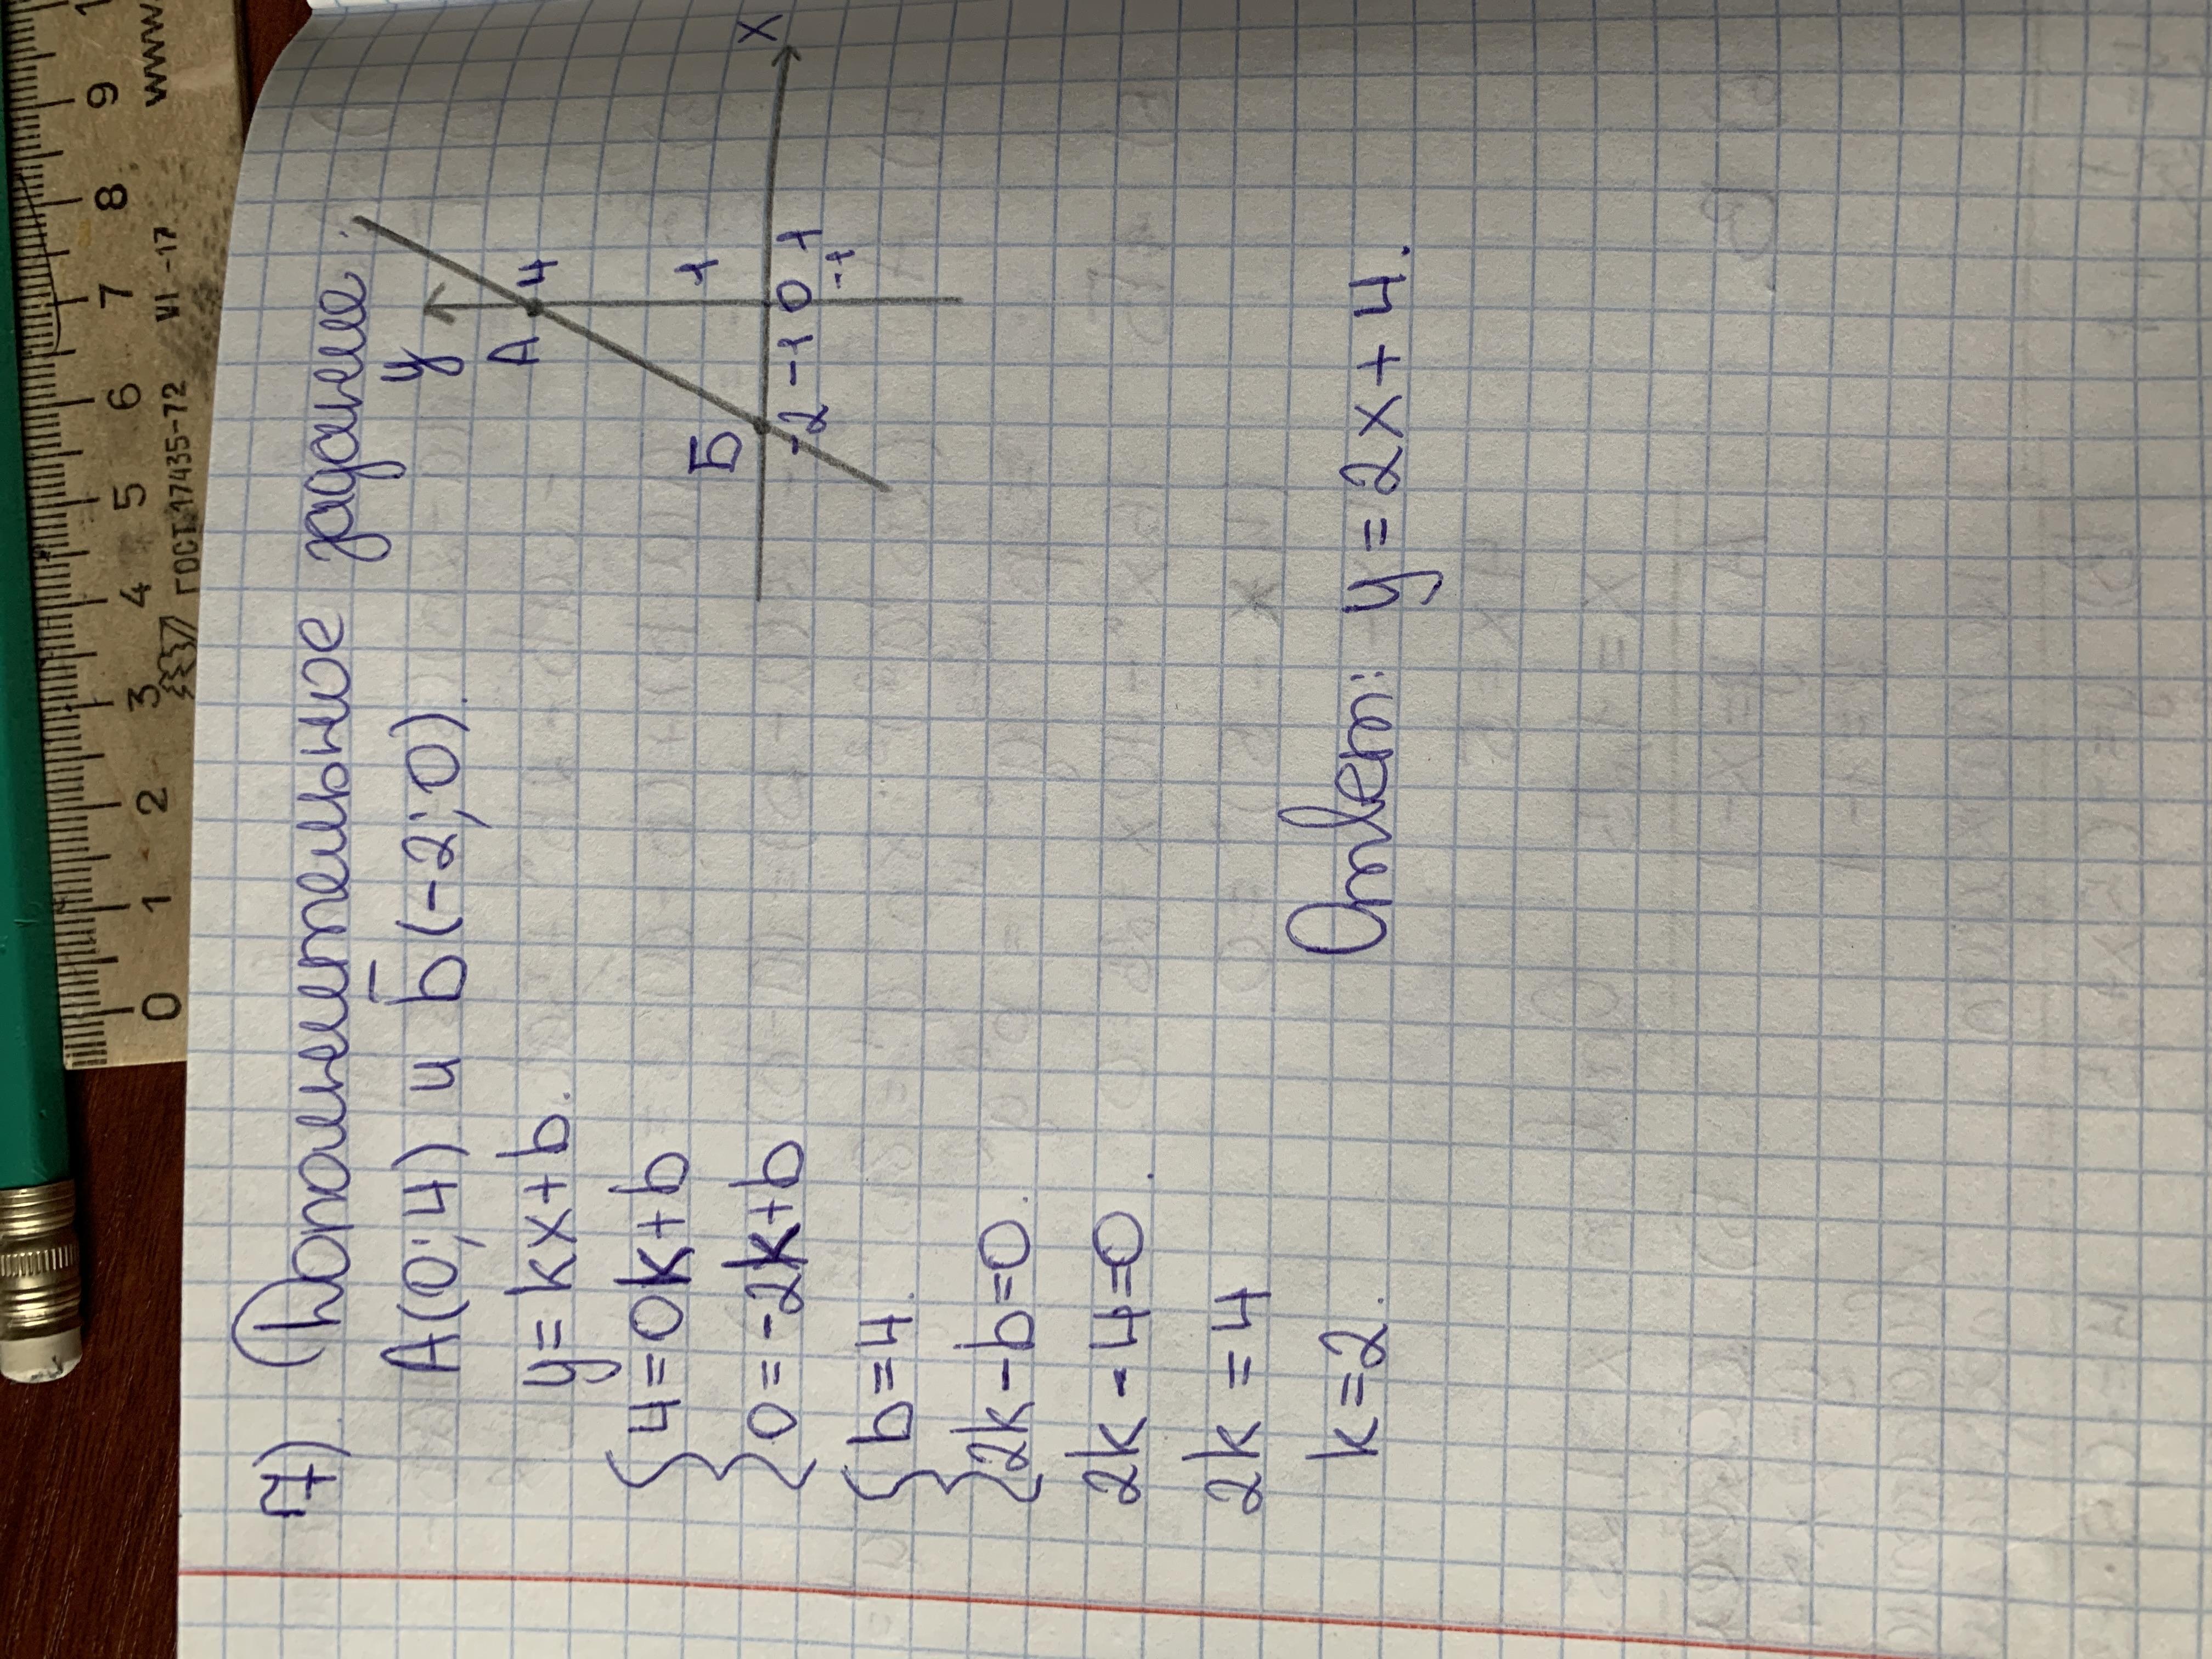 7) Дополнительное задание.
А(0;4) и Б(-2;0).
y=kx+b.
4=0k+b
0=-2k+b
b=4.
2k-b=0.
2k-4=0.
2k=4
k=2.
Ответ: y=2x+4.
y
А 4
1
Б
-2 -1 0 1
-1
x
0 1 2 3 4 5 6 7 8 9
ГОСТ 17435-72 VI-17
www.